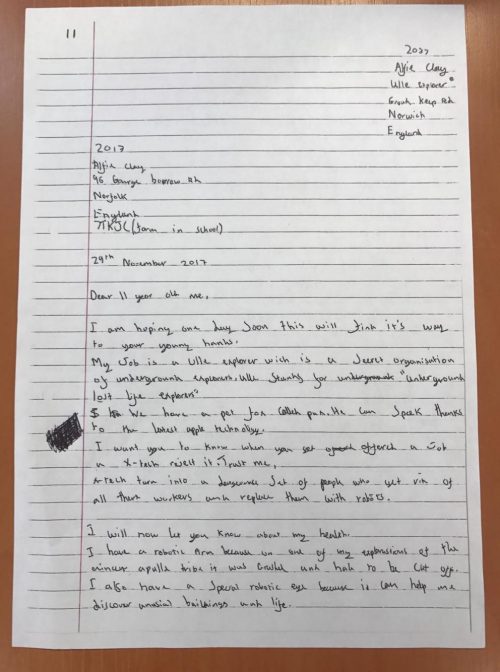 11
2037
Alfie Clay
Ulle explorer
Keep Rd
Norwich
England
2017
Alfie Clay
96 George borrow Rd
Norfolk
England
7KJC (form in school)
29th November 2017
Dear 11 year old me,
I am hoping one day soon this will find it's way
to your young hands.
My Job is a Ulle explorer wich is a secret organisation
of underground explorers. Ulle stands for "Underground
lost life explorers"
We have a pet fox called pun. He can speek thanks
to the latest apple technology.
I want you to know when you get offerd a Job
in X-tech reject it. Trust me,
X-tech turn into a dangerous set of people who get rid of
all there workers and replace them with robots.
I will now let you know about my health.
I have a robotic arm because on one of my explorasions of the
apulle tribe it was crushed and had to be cut off.
I also have a special robotic eye because it can help me
discover unusial buildings and life.